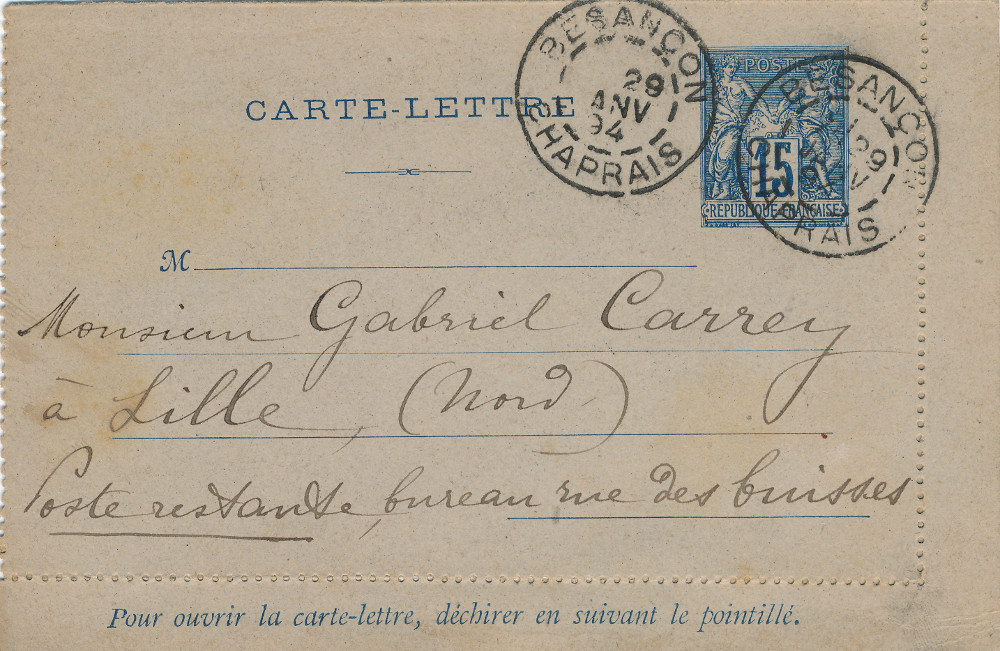 BESANÇON
29
JANV
94
CHAPRAIS
CARTE-LETTRE
POSTES
15
RÉPUBLIQUE FRANÇAISE
BESANÇON
29
CHAPRAIS
M
Monsieur Gabriel Carrey
à Lille, (Nord)
Poste restante, bureau rue des buisses
Pour ouvrir la carte-lettre, déchirer en suivant le pointillé.